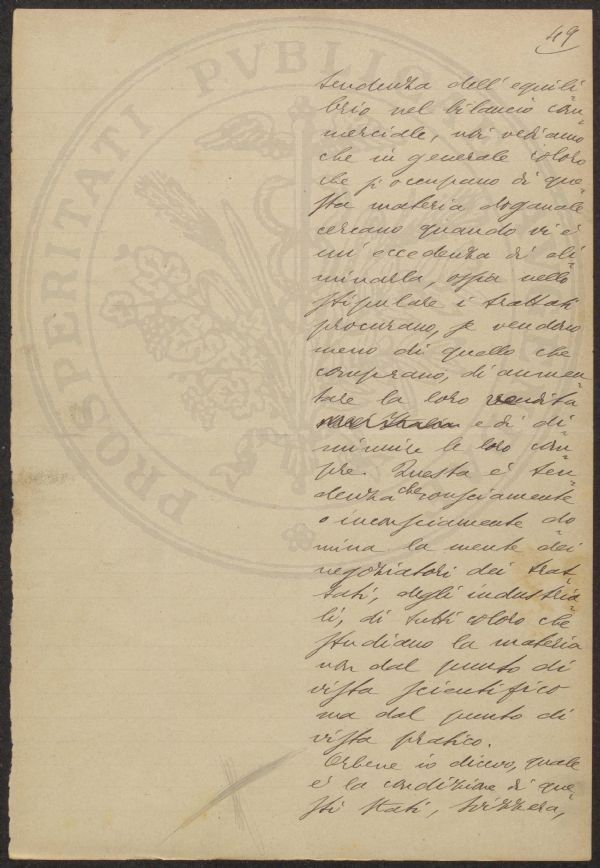 49
tendenza dell'equili=
brio nel bilancio com=
merciale, noi vediamo
che in generale coloro
che si occupano di que=
sta materia doganale
cercano quando vi è
un'eccedenza di eli=
minarla, ossia nello
stipulare i trattati
procurano, se vendono
meno di quello che
comprano, di aumen=
tare la loro vendita
e di di=
minuire le loro com=
pre. Questa è ten=
denza che consciamente
o inconsciamente do=
mina la mente dei
negoziatori dei trat=
tati, degli industria=
li, di tutti coloro che
studiano la materia
non dal punto di
vista scientifico
ma dal punto di
vista pratico.
Orbene io dicevo, quale
è la condizione di que=
sti Stati, Svizzera,
PROSPERITATI PVBLICAE